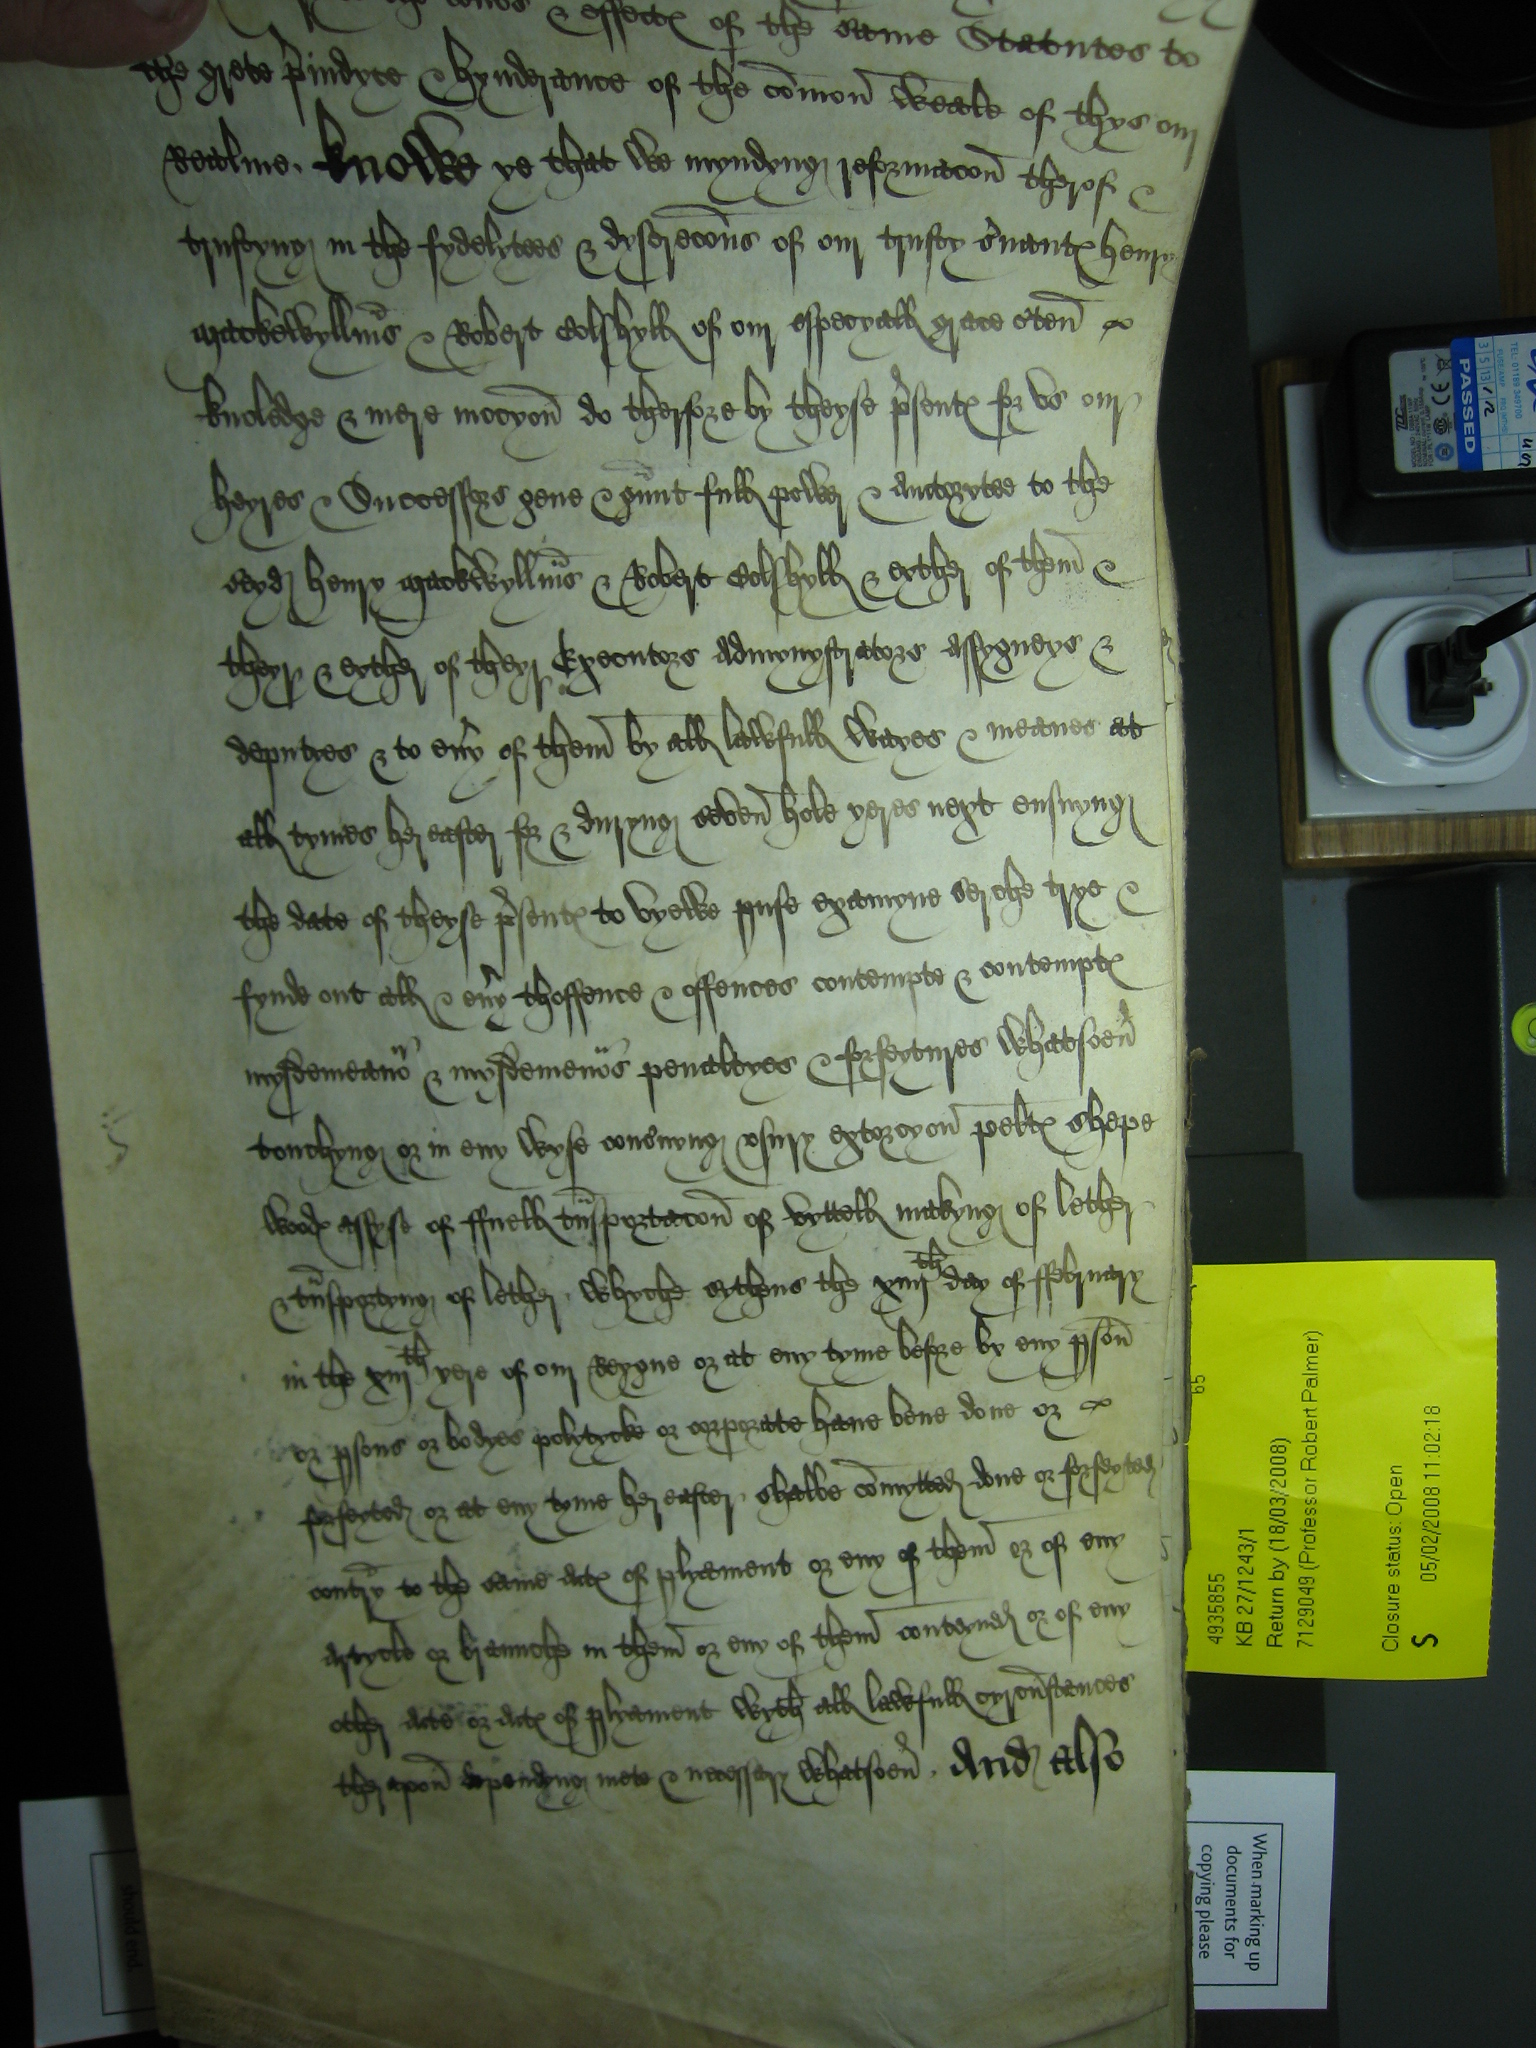 & effectx of the same Statutes to
the grete p'iudyce & hynderance of the comon weale of thys our
Realme. Knowe ye that we myndyng reformacon therof &
trustyng in the fydelytees & dyscrecons of our trusty s'uantx henry
mackewyllms & Robert Colshyll of our especyall grace c'ten
knoledge & mere mocyon do therfore by theyse p'sentx for vs our
heyres & Successors geue & graunt full power & auctoryte to the
seyd henry mackwyllms & Robert Colshyll & eyther of them &
theyr & eyther of theyr Executors admynystrators assygneys &
deputyes & to eu'y of them by all lawfull wayes & meanes at
all tymes hereafter for & duryng seven hole yeres next ensuyng
the date of theyse p'sentx to vyewe pvse examyne serche trye &
fynde out all & eu'y thoffence & offences contempte & contemptx
mysdemeano' & mysdemeno's penaltyes & forfeytures whatsoeu'
touchyng or in eny wyse cons'nyng vsury extorcyon peltx shepe
woodx assyse of ffuell transportacon of vyttell makyng of lether
& transportyng of lether. whyche sythens the xiiijth day of ffebruary
in the xiijth yere of our Reygne or at eny tyme before by eny pson
or psons or bodyes polytycke or corporate haue bene done or
forfeyted or at eny tyme hereafter shalbe comytted done or forfeyted
contry to the same actx of plyament or eny of them or of eny
artycle or braunche in them or eny of them conteyned or of eny
other acte or actx of plyament wyth all lawfull cyrcumstances
therapon dependyng mete & necessary whatsoeu'. And also
4935855
KB 27/1243/1
Return by (18/03/2008)
7129049 (Professor Robert Palmer)
Closure status: Open
S 05/02/2008 11:02:18
65
When marking up
documents for
copying please
should end.
PASSED
3/5/13/12
TEL: 01189 349700